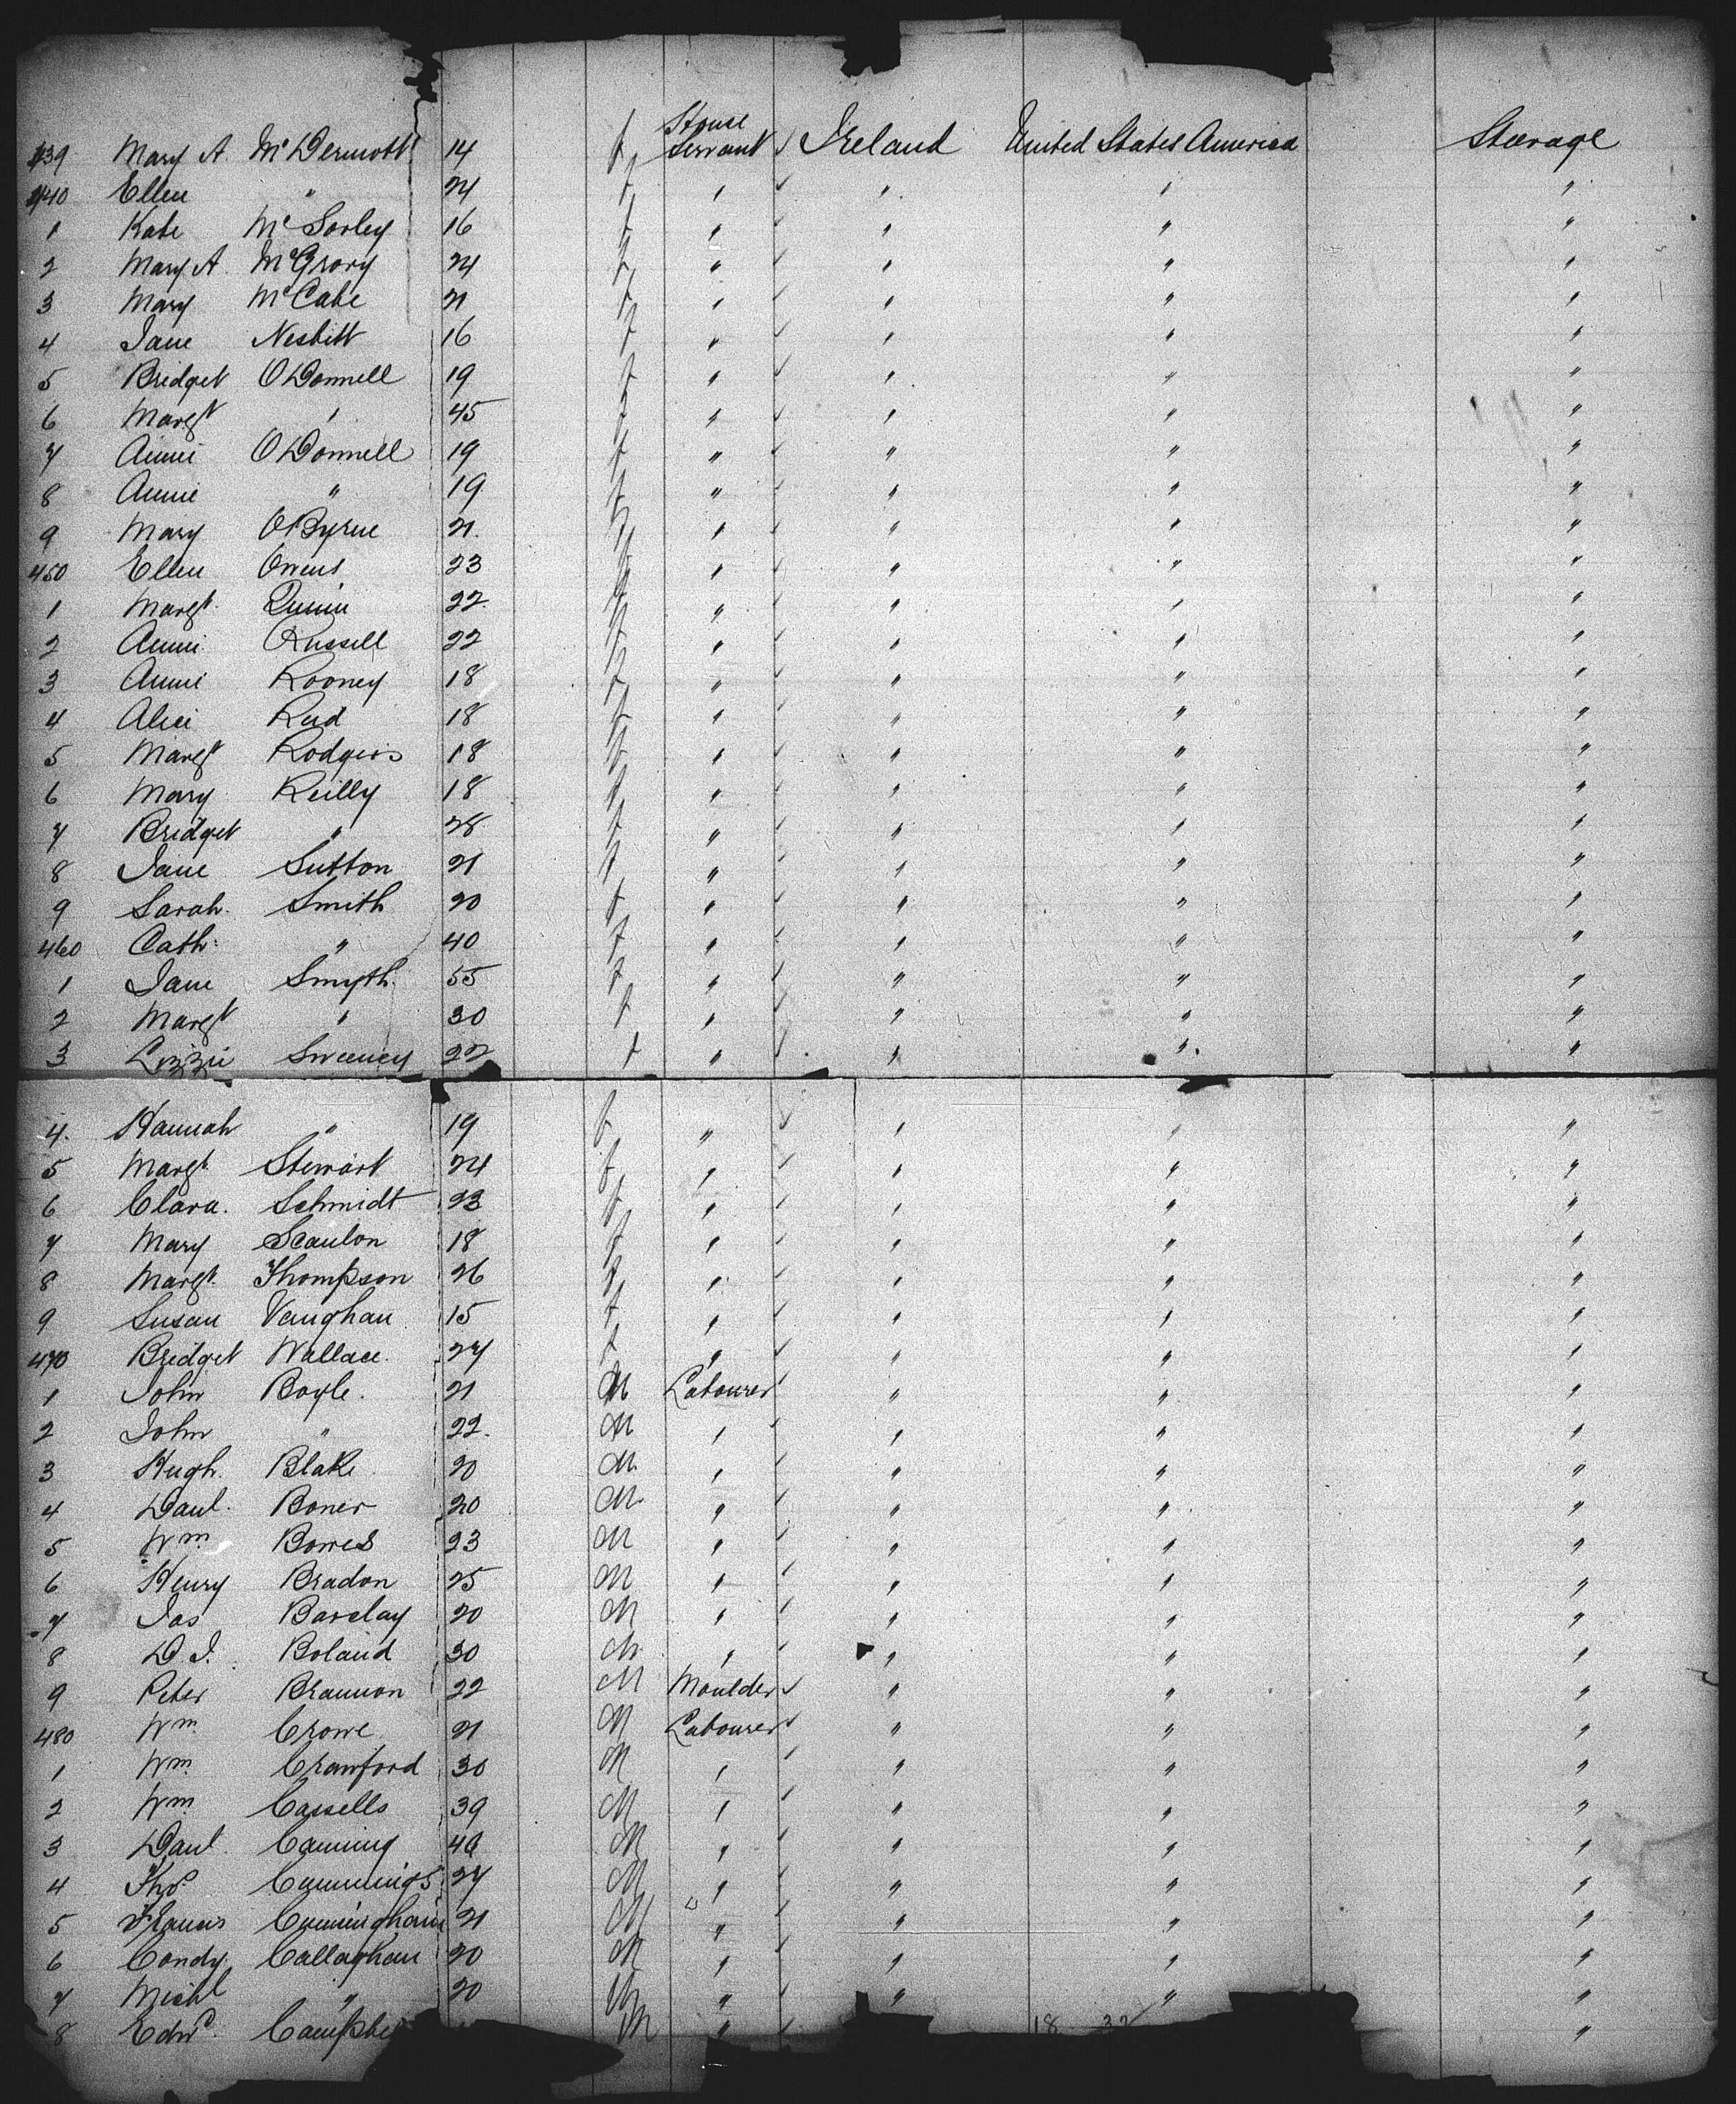 439 Mary A. McDermott 14 f House Servant ✓ Ireland United States America Steerage
440 Ellen " 24 f " ✓ " " "
1 Kate McSorley 16 f " ✓ " " "
2 Mary A. McGrory 24 f " ✓ " " "
3 Mary McCabe 21 f " ✓ " " "
4 Jane Nesbitt 16 f " ✓ " " "
5 Bridget ODonnell 19 f " ✓ " " "
6 Margt " 45 f " ✓ " " "
7 Annie ODonnell 19 f " ✓ " " "
8 Annie " 19 f " ✓ " " "
9 Mary OByrne 21. f " ✓ " " "
450 Ellen Owens 23 f " ✓ " " "
1 Margt. Quinn 22. f " ✓ " " "
2 Annie Russell 22 f " ✓ " " "
3 Annie Rooney 18 f " ✓ " " "
4 Alice Reid 18 f " ✓ " " "
5 Margt Rodgers 18 f " ✓ " " "
6 Mary Reilly 18 f " ✓ " " "
7 Bridget " 28 f " ✓ " " "
8 Jane Sutton 21 f " ✓ " " "
9 Sarah. Smith 20 f " ✓ " " "
460 Cath: " 40 f " ✓ " " "
1 Jane Smyth. 55 f " ✓ " " "
2 Margt " 30 f " ✓ " " "
3 Lizzie Sweeney 22 f " ✓ " " "
4. Hannah " 19 f " ✓ " " "
5 Margt. Stewart 24 f " ✓ " " "
6 Clara. Schmidt 23 f " ✓ " " "
7 Mary Scanlon 18 f " ✓ " " "
8 Margt. Thompson 26 f " ✓ " " "
9 Susan Vaughan 15 f " ✓ " " "
470 Bridget Wallace. 27 f " ✓ " " "
1 John Boyle. 21 M Labourer ✓ " " "
2 John " 22. M " ✓ " " "
3 Hugh. Blake. 20 M " ✓ " " "
4 Danl. Boner 20 M " ✓ " " "
5 Wm. Bowes 23 M " ✓ " " "
6 Henry Bradon 25 M " ✓ " " "
7 Jas Barclay 20 M " ✓ " " "
8 D. J. Boland 30 M " ✓ " " "
9 Peter Brannon 22 M Moulder ✓ " " "
480 Wm. Crowe 21 M Labourer ✓ " " "
1 Wm. Crawford 30 M " ✓ " " "
2 Wm. Cassells 39 M " ✓ " " "
3 Danl. Canning 40 M " ✓ " " "
4 Thos. Cummings 27 M " ✓ " " "
5 Francis Cunningham 21 M " ✓ " " "
6 Condy Callaghan 20 M " ✓ " " "
7 Michl " 20 M " ✓ " " "
8 Edwd. Campbe M " ✓ "
18 32